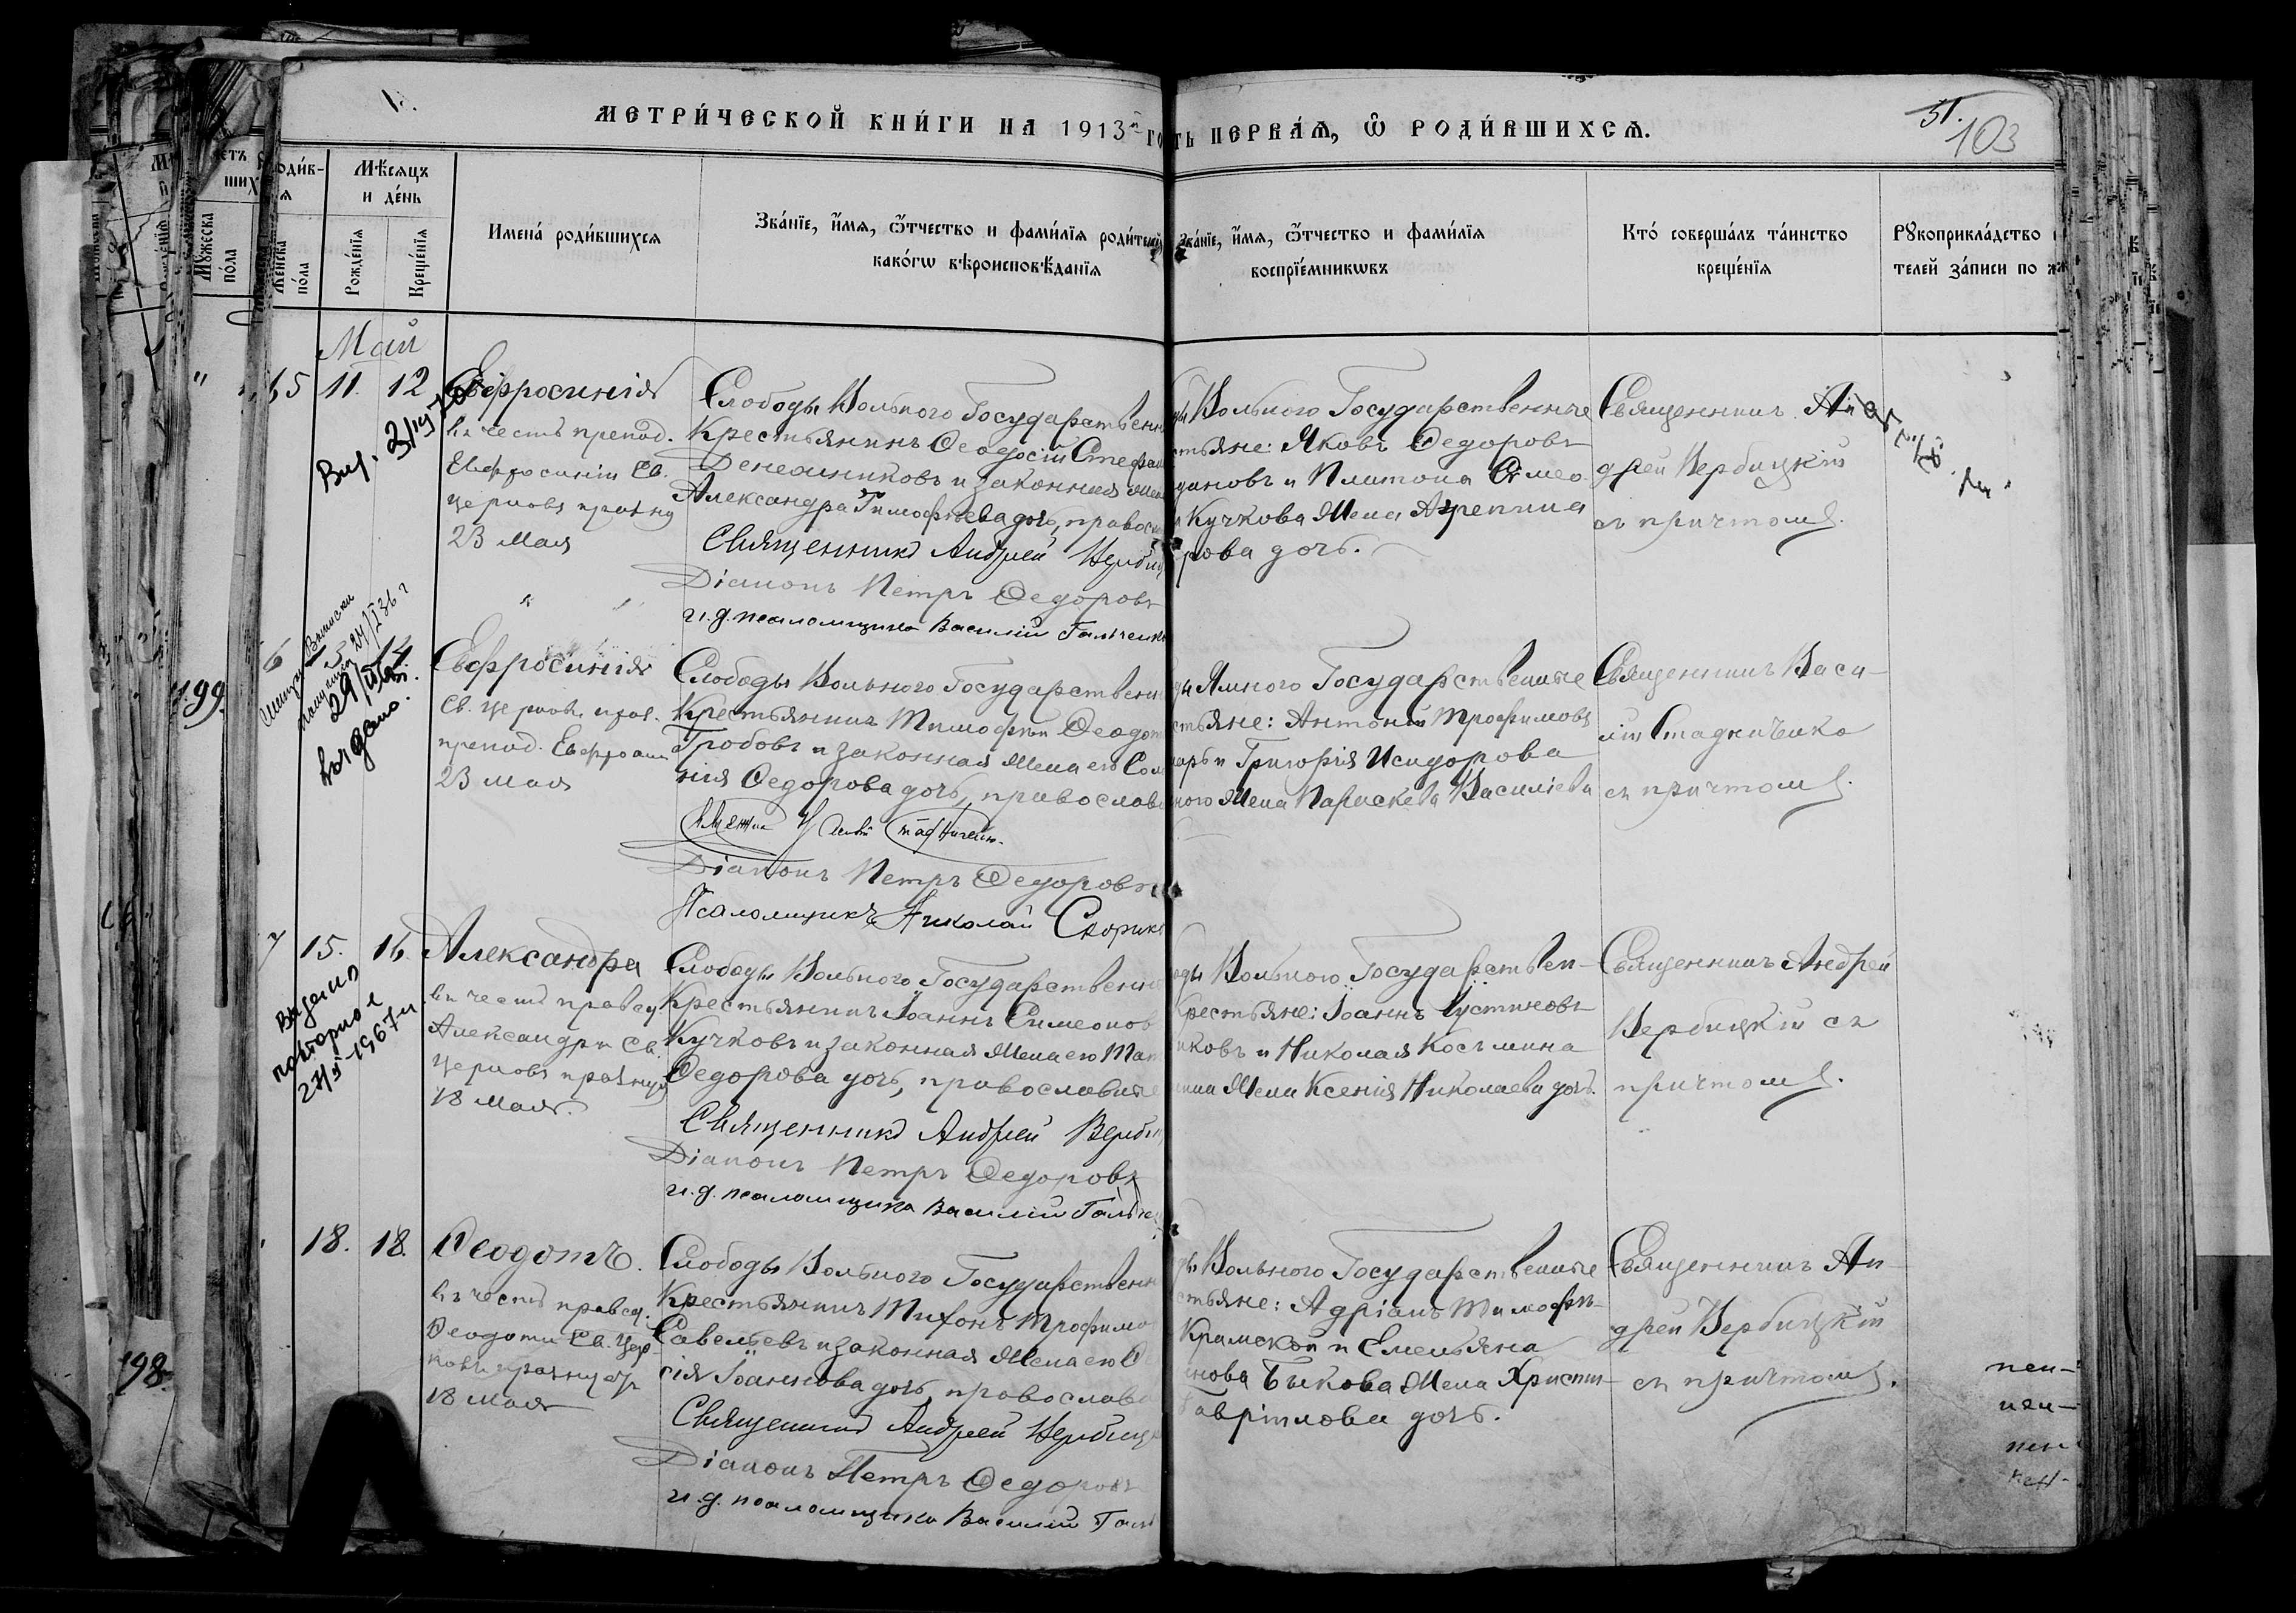 МЕТРИ́ЧЕСКОЙ КНИ́ГИ НА 1913й ГО
ТЬ ПЕРВА́Я, Ѡ РОДИ́ВШИХСЯ.
51.
103
Мѣ́сяцъ
и де́нь
Му́жеска
по́ла
Же́нска
по́ла
Рожде́нїя
Креще́нїя
Имена́ роди́вшихся
Зва́нїе, и́мя, ѻ́тчество и фами́лїя роди́телей
како́гѡ вѣроисповѣ́данїя
Зва́нїе, и́мя, ѻ́тчество и фами́лїя
воспрїе́мникѡвъ
Кто́ соверша́лъ та́инство
креще́нїя
Рꙋкоприкла́дство
телей за́писи по
Май
65 11. 12
Евфросинія
въ честь препод.
Евфросиніи Св.
церковь празну
23 мая
Слободы Вольного Государственн
Крестьянинъ Ѳеодосій Стефан
Денежниковъ и законная жена
Александра Тимофѣева дочь, правосл
Священникъ Андрей Верби
Діаконъ Петръ Ѳедоровъ
и.д. псаломщика Василій Гальченк
ды Вольного Государственные
стьяне: Яковъ Ѳедоровъ
дановъ и Платона Симео
Кучкова жена Агрепина
рова дочь.
Священникъ Ан
дрей Вербицкій
съ причтомъ.
6 14
199.
29
выдано.
Евфросинія
Св. церковь праз.
препод. Евфросин
23 мая
Слободы Вольного Государственн
Крестьянинъ Тимофѣй Ѳеодот
Гробовъ и законная жена его Сол
нія Ѳедорова дочь, православ
Діаконъ Петръ Ѳедоровъ
Псаломщикъ Николай Скорик
ды Ямного Государственные
стьяне: Антоній Трофимовъ
арь и Григорія Исидорова
ного жена Параскева Василіева
Священникъ Васи-
лій Стадниченко
съ причтомъ.
7 15. 16.
выдано
повторное
1967 г.
Александра
въ честь правед
Александры Св.
церковь празнуе
18 мая.
Слободы Вольного Государственн
Крестьянинъ Іоаннъ Симеонов
Кучковъ и законная жена его Мат
Ѳедорова дочь, православные
Священникъ Андрей Верби
Діаконъ Петръ Ѳедоровъ
и.д. псаломщика Василій Гальче
оды Вольного Государствен-
Крестьяне: Іоаннъ Іустиновъ
иковъ и Николая Косьмина
нина жена Ксенія Николаева дочь.
Священникъ Андрей
Вербицкій съ
причтомъ.
18. 18.
198
Ѳеодотъ.
въ честь правед.
Ѳеодота Св. Цер
ковь празнуетъ
18 мая
Слободы Вольного Государственн
Крестьянинъ Тихонъ Трофимо
Савельевъ и законная жена его Ѳе
сія Іоаннова дочь, православ
Священникъ Андрей Вербиц
Діаконъ Петръ Ѳедоровъ
и.д. псаломщика Василій Галь
ды Вольного Государственные
стьяне: Адріанъ Тимофѣ-
Крамской и Емельяна
нова Быкова жена Христи-
Гавріилова дочь.
Священникъ Ан-
дрей Вербицкій
съ причтомъ.